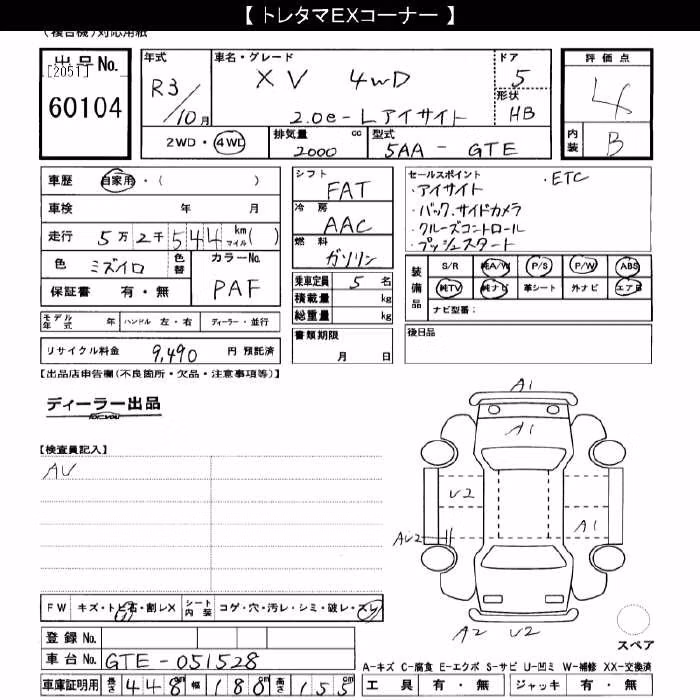 【 トレタマEXコーナー 】
(複合機)対応用紙
出品No.
[2051]
60104
年式
R3/10月
車名・グレード
XV 4WD
2.0e-Lアイサイト
ドア
5
形状
HB
2WD・4WD
排気量 cc
2000
型式
5AA - GTE
評価点
4
内装
B
車歴 自家用・( )
車検 年 月
走行 5万2千544 km マイル( )
色 ミズイロ
色替
カラーNo.
PAF
保証書 有・無
シフト
FAT
冷房
AAC
燃料
ガソリン
乗車定員 5 名
積載量 kg
総重量 kg
セールスポイント
・アイサイト
・ETC
・バック、サイドカメラ
・クルーズコントロール
・プッシュスタート
装備品
S/R 純A/W P/S P/W ABS
純TV 純ナビ 革シート 外ナビ エアB
ナビ型番:
モデル年式 年 ハンドル 左・右 ディーラー・並行
リサイクル料金 9,490 円 預託済
書類期限
月 日
後日品
【出品店申告欄(不良箇所・欠品・注意事項等)】
ディーラー出品
【検査員記入】
AU
A1
A1
U2
AU2
A1
A2 U2
スペア
FW キズ・トビ石・割レX
シート内装 コゲ・穴・汚レ・シミ・破レ・スレ
登録No.
車台No. GTE-051528
車庫証明用 長さ 448cm 幅 180cm 高さ 155cm
A-キズ C-腐食 E-エクボ S-サビ U-凹ミ W-補修 XX-交換済
工具 有・無 ジャッキ 有・無